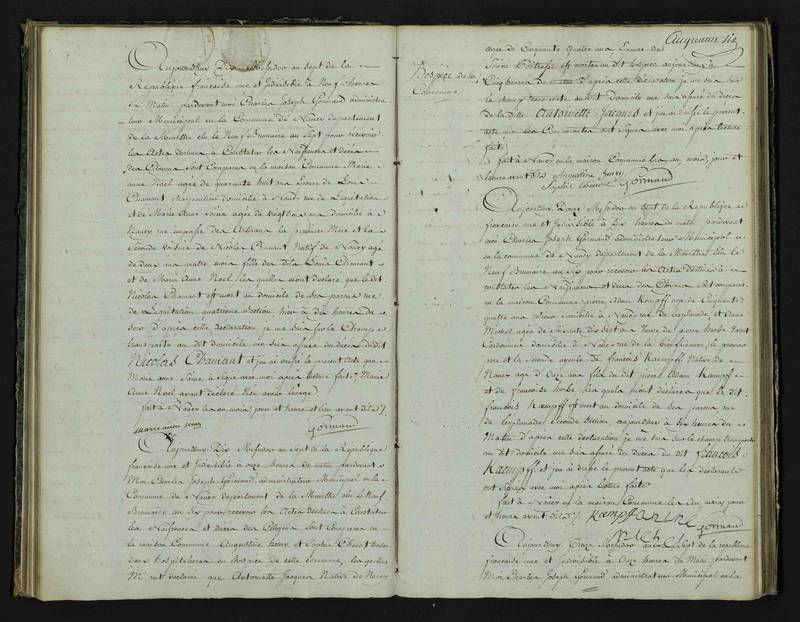 Aujourdhuy Dix Messidor an sept de la
République française une et Indivisible à Neuf heures
du Matin pardevant moi Charles Joseph Gormand administra
teur Municipal en la Commune de Nancy departement
de la Meurthe élu le Neuf Brumaire an Sept pour recevoir
les Actes destinés à Constater les Naissances et décès
des Citoyens sont Comparus en la maison Commune Marie
anne Noël agée de quarante huit ans Epouse de Louis
Chamant charpentier domicilié à Nancy rue de Législation
et de Marie Anne agée de vingt ans domiciliée à
Nancy rue impasse des Artisans la premiere Mere et la
Seconde voisine de Nicolas Chamant Natif de Nancy agé
de deux ans quatre mois fils de dit Louis Chamant
et de Marie Anne Noël les quelles m'ont declaré que le dit
Nicolas Chamant est mort au domicile de Ses parens rue
de Législation quatrieme Section hier à dix heures du
soir d'après cette declaration je me suis sur le Champ
transporté au dit domicile me suis assuré du décès du dit
Nicolas Chamant et j'ai dressé le present acte que
Marie anne a Signé avec moi après lecture faite Marie
Anne Noël ayant declaré N'en avoir l'usage
fait à Nancy les an mois jour et heure et lieu avant dits
marie anne
Gormand
Aujourdhuy Dix Messidor an sept de la République
française une et Indivisible à onze heures du matin pardevant
Moi Charles Joseph Gormand administrateur Municipal en la
Commune de Nancy departement de la Meurthe élu le Neuf
Brumaire an Six pour recevoir les Actes destinés à Constater
les Naissances et décès des Citoyens Sont Comparus en
la maison Commune Augustine henry et Sophie
dans hospitalieres en l'hospice de cette Commune, les quelles
M'ont declaré que Antoinette Jacques Native de Nancy
Cinquante six
agée de Cinquante Quatre ans, Epouse de
Hospice de la
Commune
est morte au dit hospice aujourdhuy à
Cinq heures du matin d'après cette declaration je me suis sur
le champ transporté au dit Domicile me suis assuré du décès
de la dite Antoinette Jacques et j'ai dressé le present
acte que les Comparantes ont signé avec moi après lecture
faite
fait à Nancy en la maison Commune les an, mois, jour et
heure avant dits Augustine henry
Sophie Gormand
Aujourdhuy Douze Messidor an Sept de la République
française une et Indivisible à Dix heures du matin pardevant
moi Charles Joseph Gormand administrateur Municipal
en la commune de Nancy departement de la Meurthe élu le
Neuf Brumaire an Six pour recevoir les Actes destinés à
constater les Naissances et décès des Citoyens Sont comparus
en la maison Commune pierre Adam Kampff agé de Cinquante
quatre ans domicilié à Nancy rue de l'esplanade, et Anne
Michel agée de Soixante dix Sept ans Veuve de pierre horbe vivant
Cordonnier domiciliée à Nancy rue de la bienfaisance, le premier
pere et la Seconde ayeule de françois Kaempff Natif de
Nancy agé d'Onze ans fils du dit pierre Adam Kampff
et de françoise horbe les quels m'ont declaré que le dit
françois Kaempff est mort au domicile de Ses parens rue
de l'esplanade Seconde Section, aujourdhuy à Six heures du
Matin d'après cette declaration je me suis sur le champ transporté
au dit domicile me suis assuré du décès du dit françois
Kaempff et j'ai dressé le present acte que les declarants
ont signé avec moi après lecture faite
fait à Nancy en la maison Commune les an, mois, jour
et heure avant dits Kaempff
Gormand
Aujourdhuy Treize Messidor an Sept de la république
française une et Indivisible à Onze heures du Matin pardevant
Moi Charles Joseph Gormand administrateur Municipal en la